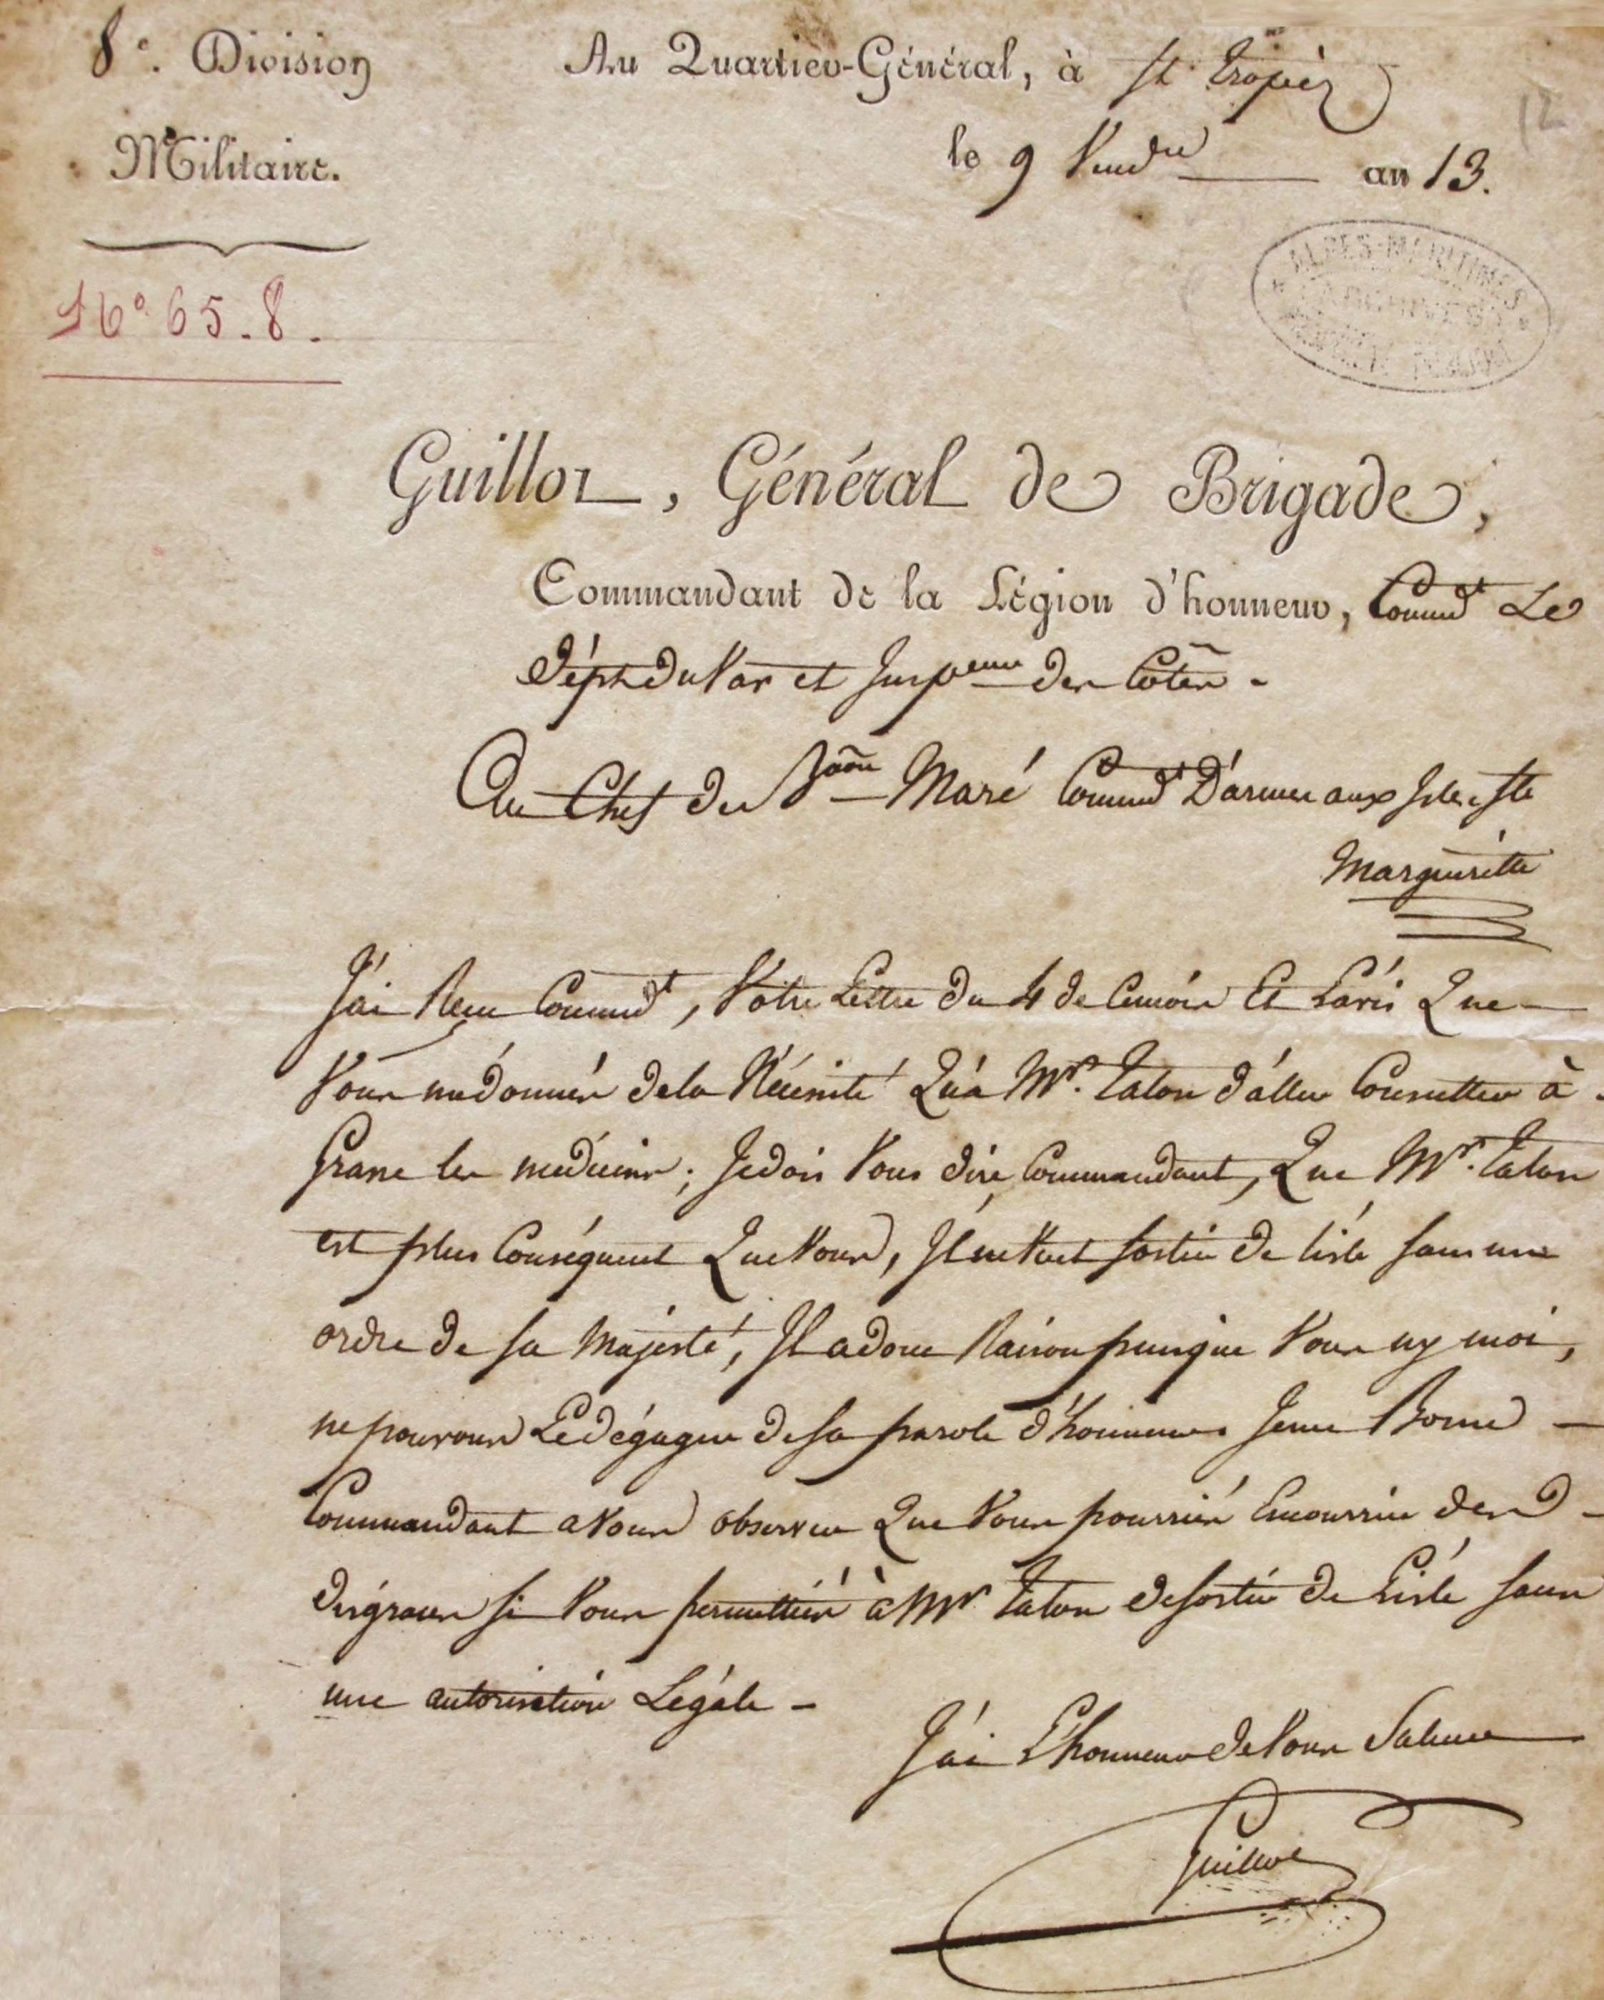 8e. Division
Militaire.
Au Quartier-Général, à St tropèz
le 9 Vendre an 13.
12
ALPES-MARITIMES
ARCHIVES
No 65. 8.
Guillot, Général de Brigade,
Commandant de la Légion d'honneur, Commdt Le
Dépt du Var et Inspeur des Côtes.
Au Chef de Baon Maré Commdt D'armes aux Isles Ste
Marguerite
J'ai Reçu Commdt, Votre Lettre du 4 de Cemois Et L'avis Que
Vous me donnés dela Nécessité Qu'a Mr. Talon d'aller Consulter à
Grasse les medecins; Jedois Vous dire Commandant, Que Mr. Talon
est plus Conséquent Que Vous, Il ne Veut sortir de l'isle sans une
ordre de Sa Majesté, Il a donc Raison puisque Vous ny moi,
ne pouvons Le dégager de sa parole d'honneur. Je me Borne
Commandant a Vous observer Que Vous pourriés Encourrir des
disgraces si Vous permettiés à Mr Talon de sortir de L'isle sans
une autorisation Légale.
J'ai L'honneur de Vous Saluer
Guillot